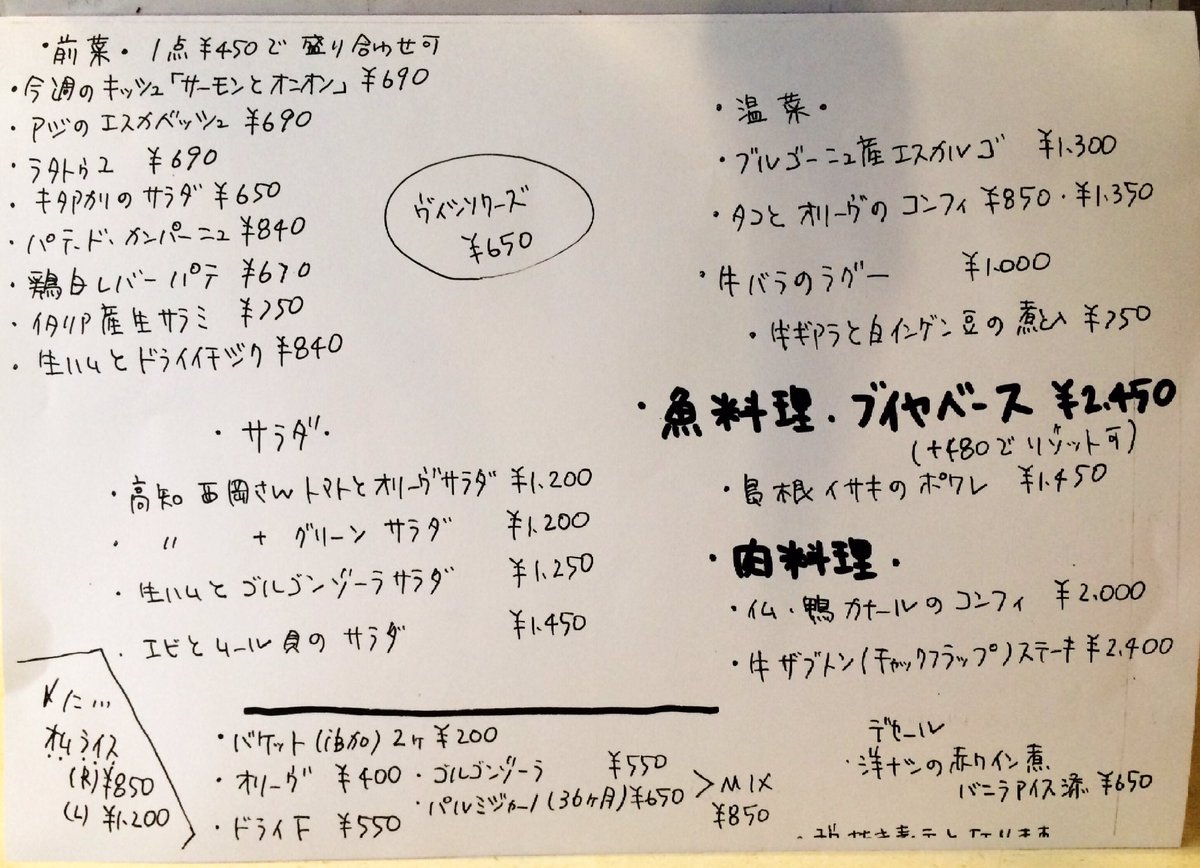 ・前菜・ 1点¥450で盛り合わせ可
・今週のキッシュ「サーモンとオニオン」¥690
・アジのエスカベッシュ ¥690
・ラタトゥユ ¥690
・キタアカリのサラダ ¥650
・パテ・ド・カンパーニュ ¥840
・鶏白レバーパテ ¥670
・イタリア産生サラミ ¥750
・生ハムとドライイチジク ¥840
ヴィンソワーズ
¥650
・サラダ・
・高知 西岡さんトマトとオリーヴサラダ ¥1.200
・ 〃 + グリーンサラダ ¥1.200
・生ハムとゴルゴンゾーラサラダ ¥1.250
・エビとムール貝のサラダ ¥1.450
〆に…
オムライス
(R)¥850
(L)¥1.200
・バケット(追加)2ヶ ¥200
・オリーヴ ¥400
・ドライF ¥550
・ゴルゴンゾーラ ¥550
・パルミジャーノ(36ヶ月)¥650
>MIX
¥850
・温菜・
・ブルゴーニュ産エスカルゴ ¥1.300
・タコとオリーヴのコンフィ ¥850・¥1.350
・牛バラのラグー ¥1.000
・牛ギアラと白インゲン豆の煮込 ¥750
・魚料理・ブイヤベース ¥2.450
(+480でリゾット可)
・島根イサキのポワレ ¥1.450
・肉料理・
・仏・鴨カナールのコンフィ ¥2.000
・牛ザブトン(チャックフラップ)ステーキ ¥2.400
デセール
・洋ナシの赤ワイン煮
バニラアイス添 ¥650